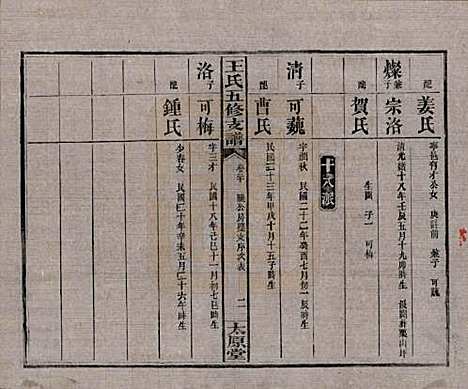 配 姜氏
寧邑有才公女
兼子 可巍
燦 兼子 宗洛
清光緒十八年壬辰五月十九卯時生
配 賀氏
生 子一 可梅
十八派
清子 可巍
字潤秋 民國二十二年癸酉七月初一辰時生
配 曹氏
民國二十三年甲戌十月十五子時生
王氏五修支譜
房程支序次表
二
太原堂
洛子 可梅
字三才 民國十八年己巳十一月初七巳時生
配 鍾氏
少春女 民國二十年辛未五月二十六午時生